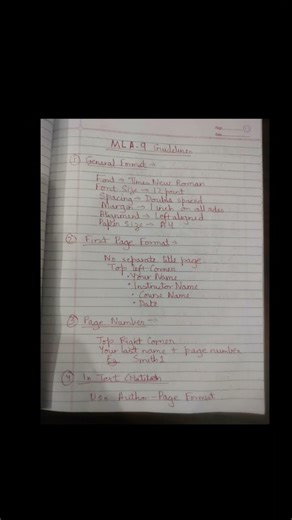 Page
Date
MLA-9 Guidelines
① General Format →
Font → Times New Roman
Font Size → 12 point
Spacing → Double spaced
Margin → 1 inch on all sides
Alignment → Left aligned
Paper Size → A4
② First Page Format →
No separate title page
Top left Corner
• Your Name
• Instructor Name
• Course Name
• Date
③ Page Number →
Top Right Corner
Your last name + page number
Eg. Smith 1
④ In Text Citation
Use Author - Page Format